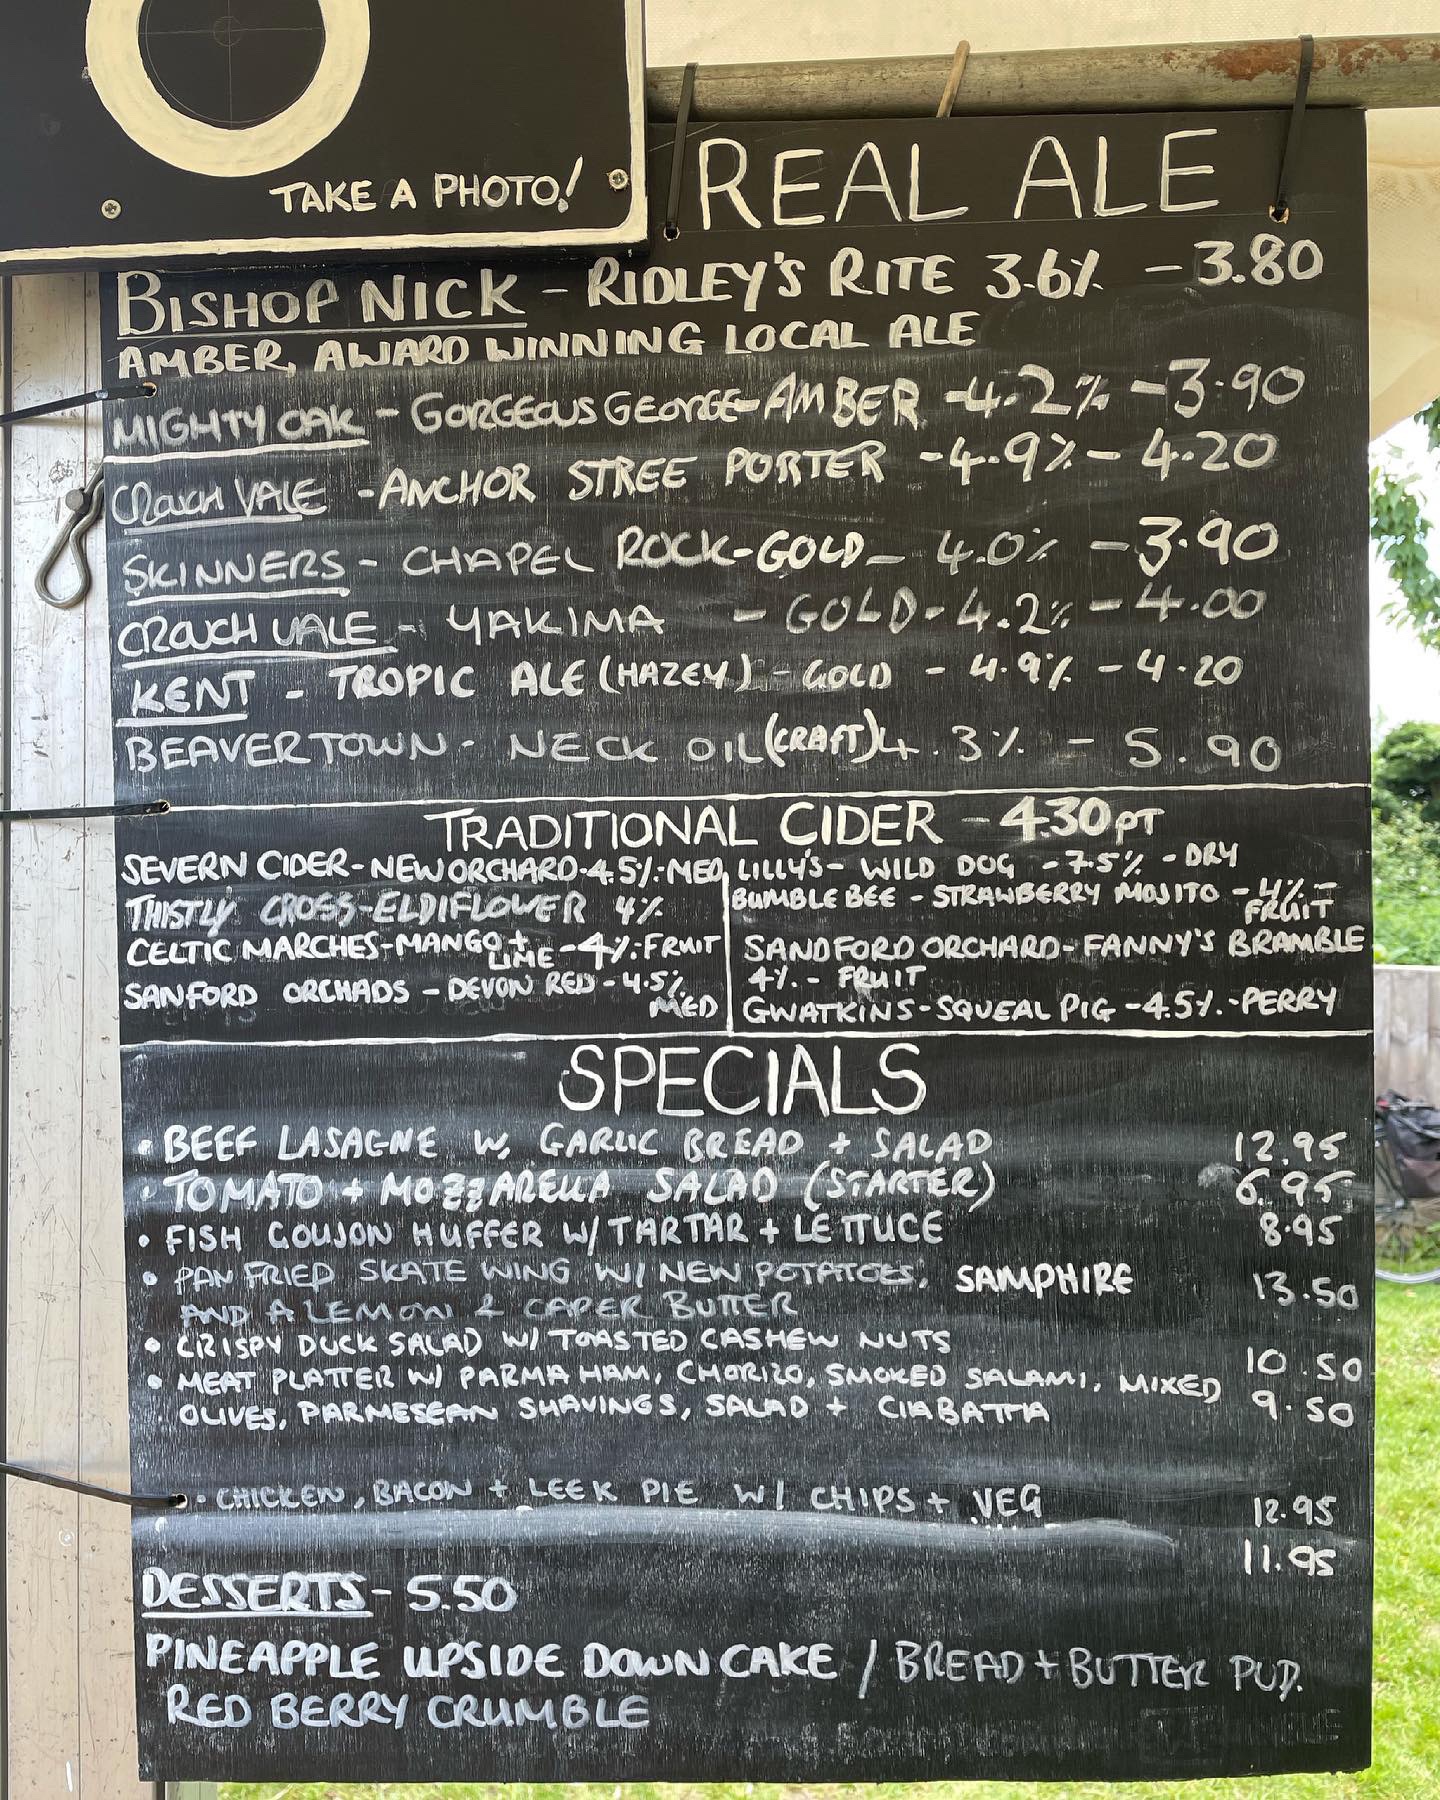 TAKE A PHOTO!
REAL ALE
BISHOP NICK - RIDLEY'S RITE 3.6% - 3.80
AMBER, AWARD WINNING LOCAL ALE
MIGHTY OAK - GORGEOUS GEORGE - AMBER - 4.2% - 3.90
CROUCH VALE - ANCHOR STREE PORTER - 4.9% - 4.20
SKINNERS - CHAPEL ROCK - GOLD - 4.0% - 3.90
CROUCH VALE - YAKIMA - GOLD - 4.2% - 4.00
KENT - TROPIC ALE (HAZEY) - GOLD - 4.9% - 4.20
BEAVERTOWN - NECK OIL (CRAFT) 4.3% - 5.90
TRADITIONAL CIDER - 4.30 PT
SEVERN CIDER - NEW ORCHARD - 4.5% - MED
THISTLY CROSS - ELDIFLOWER 4%
CELTIC MARCHES - MANGO +
LIME - 4% - FRUIT
SANFORD ORCHADS - DEVON RED - 4.5%
MED
LILLY'S - WILD DOG - 7.5% - DRY
BUMBLE BEE - STRAWBERRY MOJITO - 4% -
FRUIT
SANDFORD ORCHARD - FANNY'S BRAMBLE
4% - FRUIT
GWATKINS - SQUEAL PIG - 4.5% - PERRY
SPECIALS
• BEEF LASAGNE W/ GARLIC BREAD + SALAD 12.95
• TOMATO + MOZZARELLA SALAD (STARTER) 6.95
• FISH GOUJON HUFFER W/ TARTAR + LETTUCE 8.95
• PAN FRIED SKATE WING W/ NEW POTATOES, SAMPHIRE 13.50
AND A LEMON & CAPER BUTTER
• CRISPY DUCK SALAD W/ TOASTED CASHEW NUTS 10.50
• MEAT PLATTER W/ PARMA HAM, CHORIZO, SMOKED SALAMI, MIXED 9.50
OLIVES, PARMESEAN SHAVINGS, SALAD + CIABATTA
• CHICKEN, BACON + LEEK PIE W/ CHIPS + VEG 12.95
11.95
DESSERTS - 5.50
PINEAPPLE UPSIDE DOWN CAKE / BREAD + BUTTER PUD.
RED BERRY CRUMBLE